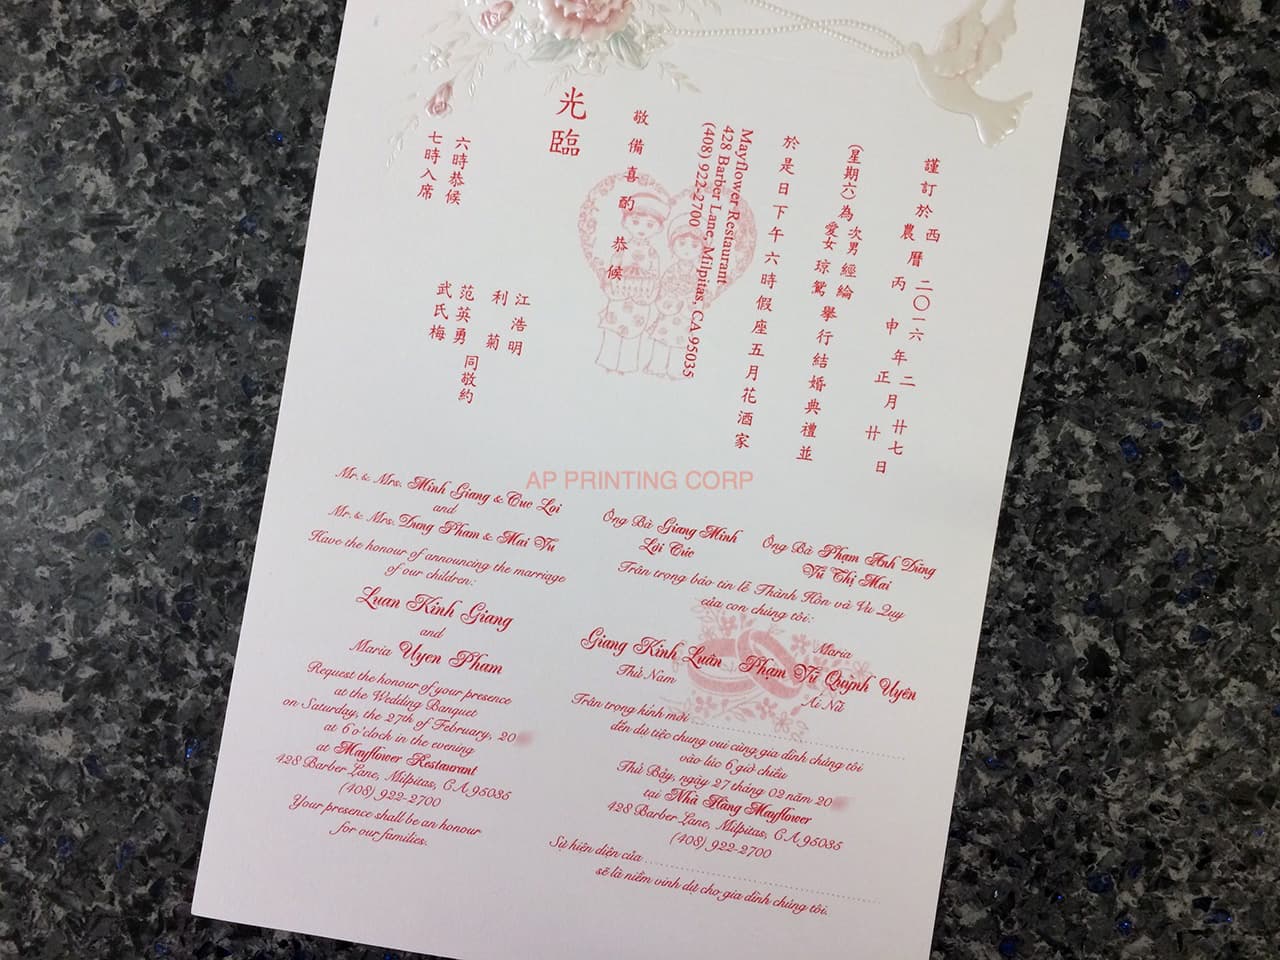 謹訂於西曆二〇一六年二月廿七日
農丙申正月廿
(星期六)為次男經綸
愛女琼鴛舉行結婚典禮並
於是日下午六時假座五月花酒家
Mayflower Restaurant
428 Barber Lane, Milpitas, CA 95035
(408) 922-2700
敬備喜酌恭候
光臨
江浩明
利菊
范英勇
武氏梅
同敬約
六時恭候
七時入席
AP PRINTING CORP
Mr. & Mrs. Minh Giang & Cuc Loi
and
Mr. & Mrs. Dung Pham & Mai Vu
Have the honour of announcing the marriage
of our children:
Luan Kinh Giang
and
Maria Uyen Pham
Request the honour of your presence
at the Wedding Banquet
on Saturday, the 27th of February, 20
at 6 o'clock in the evening
at Mayflower Restaurant
428 Barber Lane, Milpitas, CA 95035
(408) 922-2700
Your presence shall be an honour
for our families.
Ông Bà Giang Minh
Lợi Cúc
Ông Bà Phạm Anh Dũng
Vũ Thị Mai
Trân trọng báo tin lễ Thành Hôn và Vu Quy
của con chúng tôi:
Giang Kinh Luân
Thứ Nam
Maria
Phạm Vũ Quỳnh Uyên
Ái Nữ
Trân trọng kính mời
đến dự tiệc chung vui cùng gia đình chúng tôi
vào lúc 6 giờ chiều
Thứ Bảy, ngày 27 tháng 02 năm 20
tại Nhà Hàng Mayflower
428 Barber Lane, Milpitas, CA 95035
(408) 922-2700
Sự hiện diện của
sẽ là niềm vinh dự cho gia đình chúng tôi.